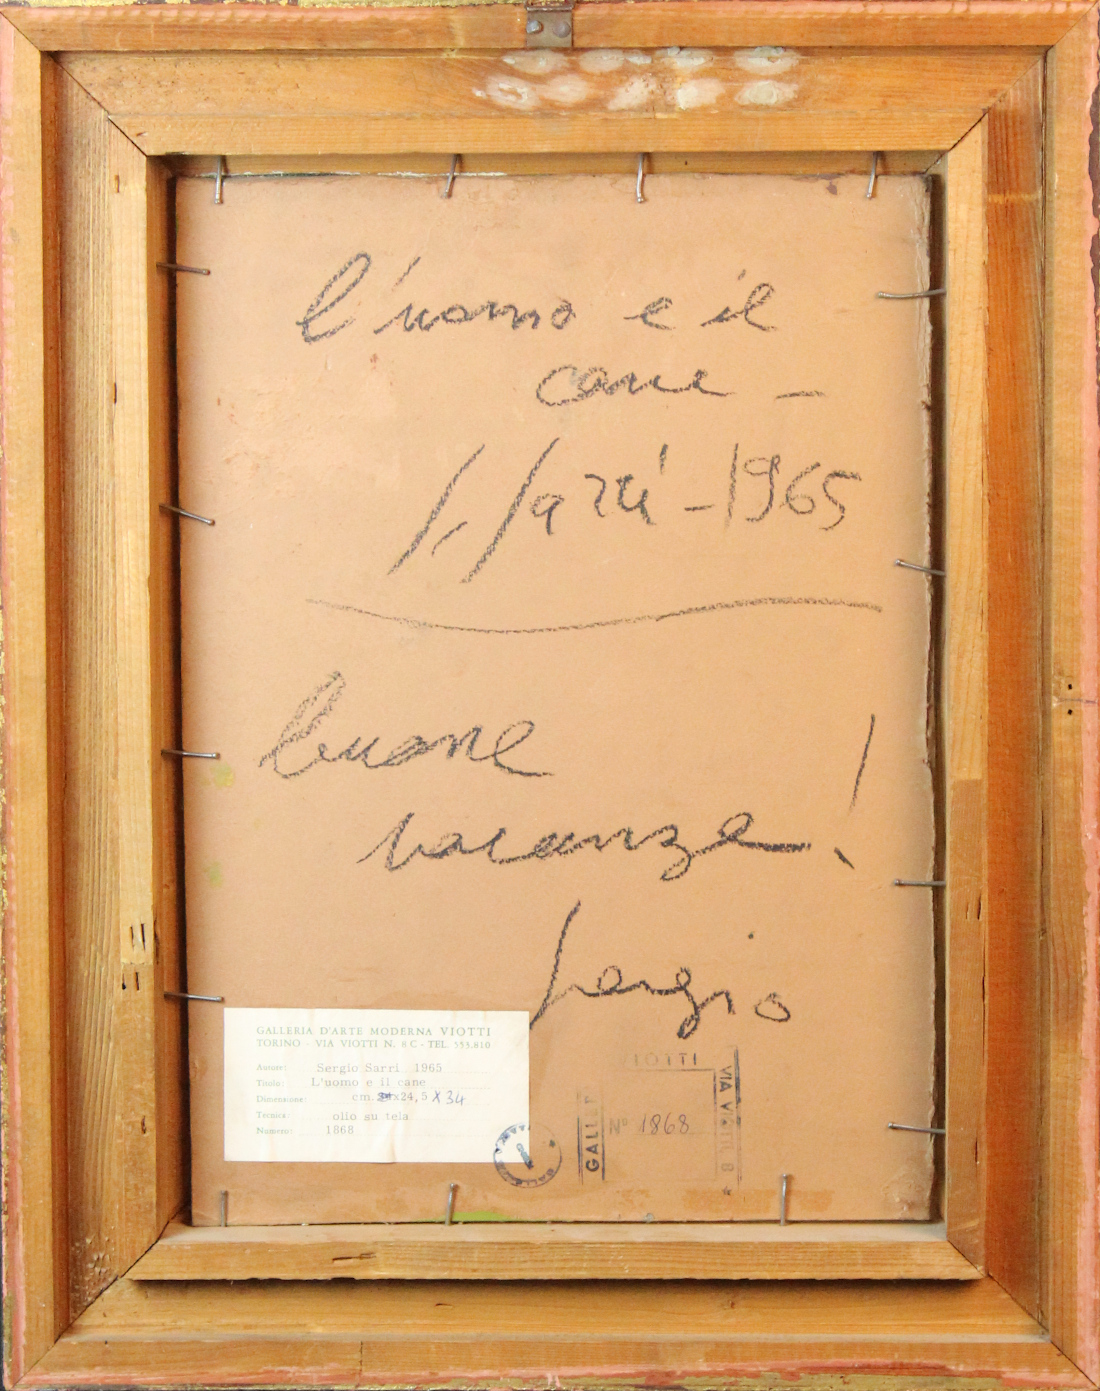 l'uomo e il
cane –
S. Sarri – 1965
buone
vacanze!
Sergio
GALLERIA D'ARTE MODERNA VIOTTI
TORINO - VIA VIOTTI N. 8 C - TEL. 553.810
Autore: Sergio Sarri 1965
Titolo: L'uomo e il cane
Dimensione: cm. x24,5 x 34
Tecnica: olio su tela
Numero: 1868
VIOTTI
GALLE
N° 1868
VIA VIOTTI, 8